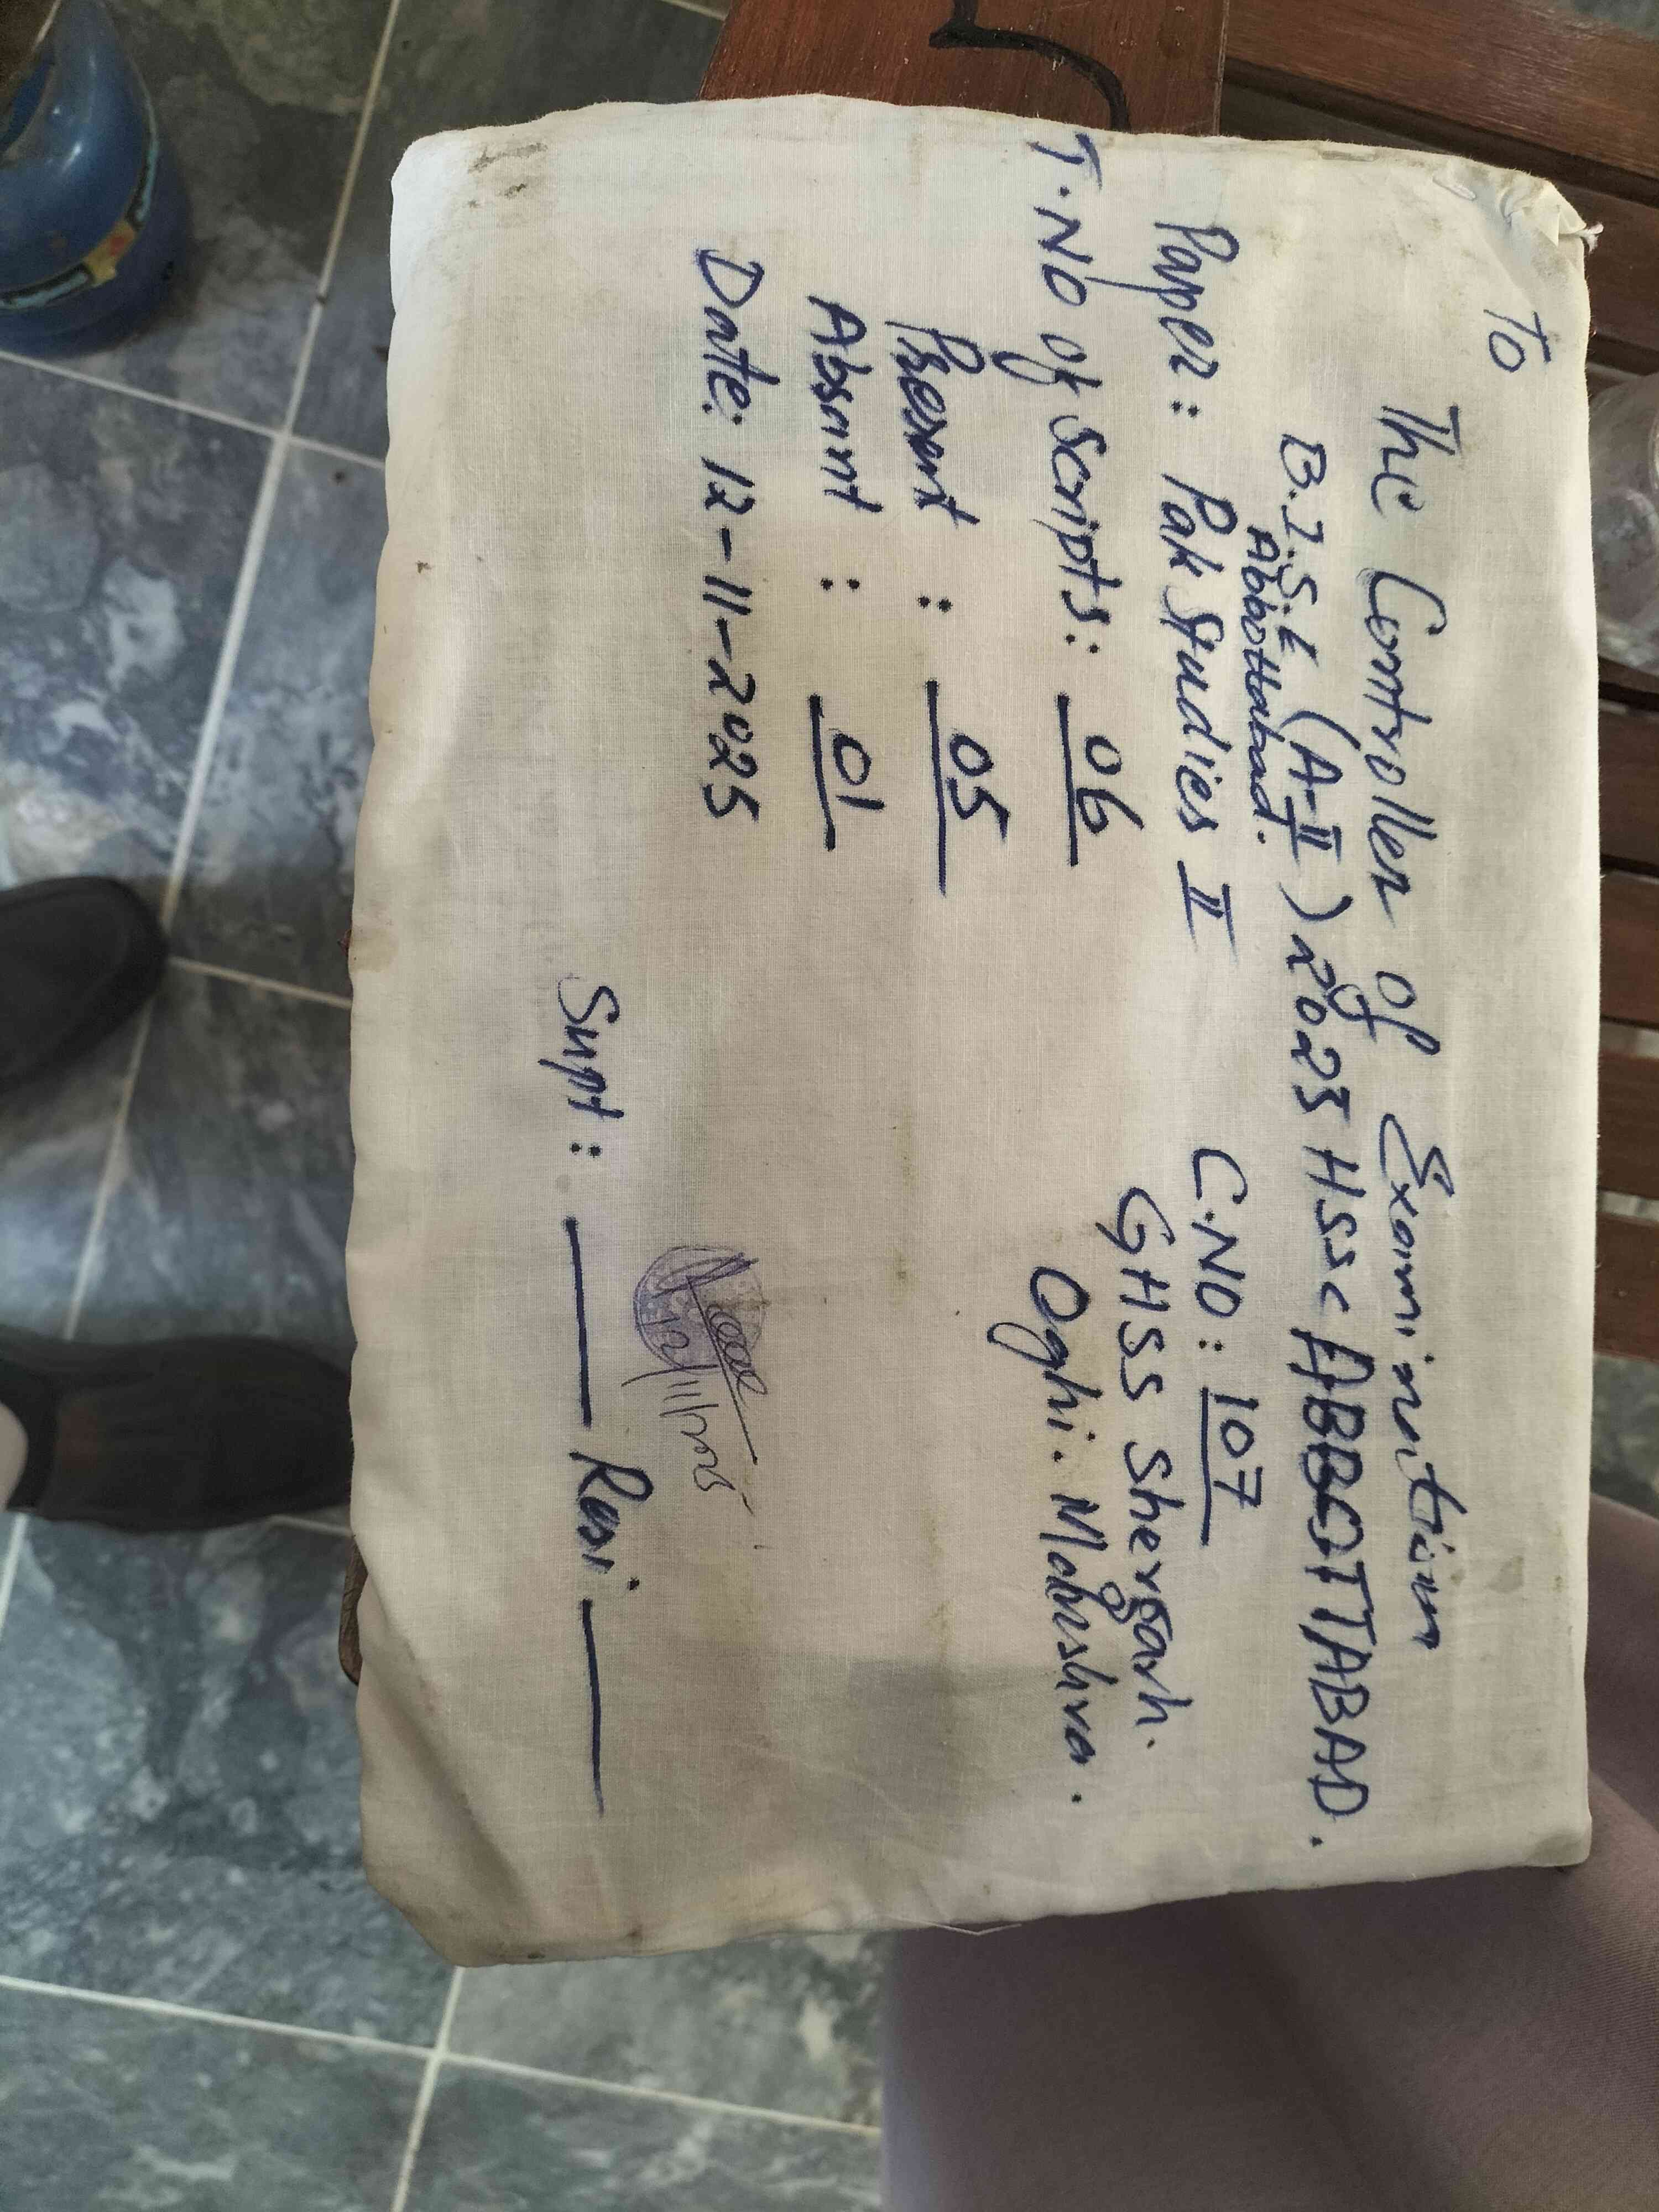 To
The Controller of Examination
B.I.S.E (A-II) 2025 HSSC ABBOTTABAD.
Abbottabad.
Paper: Pak Studies II
C.NO: 107
GHSS Shergarh.
Oghi. Mansehra.
T.No of Scripts: 06
Present : 05
Absent : 01
Date: 12-11-2025
12/11/2025
Supt: Resi